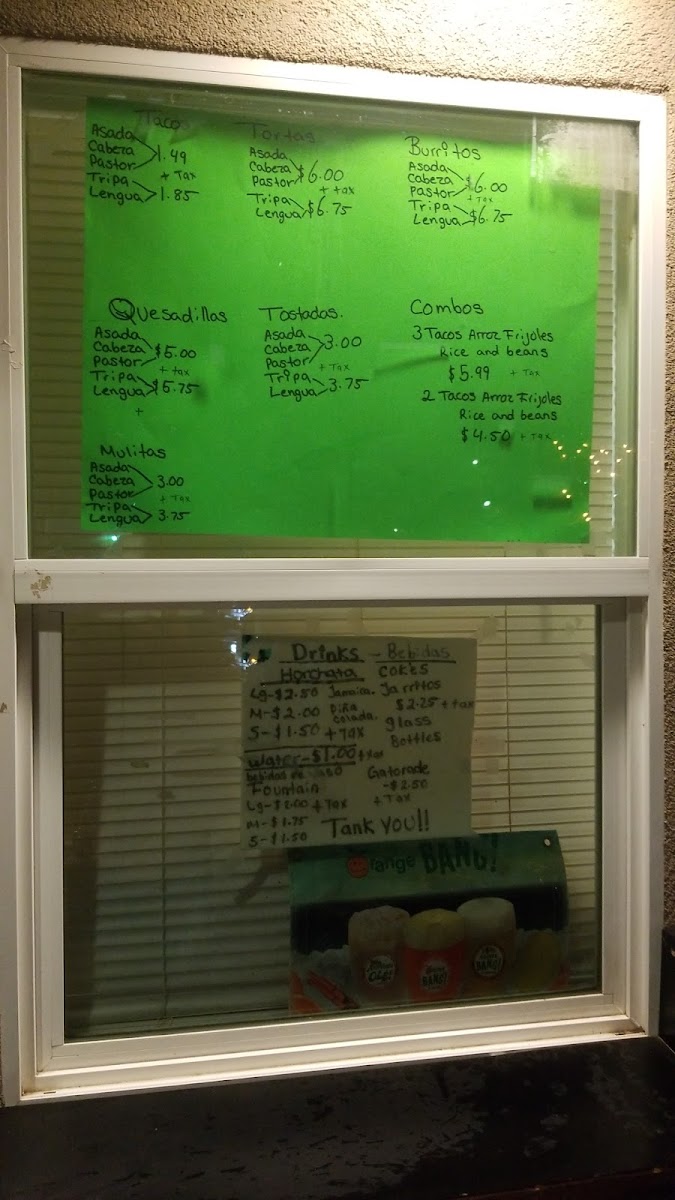 Tacos
Asada
Cabeza
Pastor
1.49
+ Tax
Tripa
Lengua
1.85
Tortas
Asada
Cabeza
Pastor
$6.00
+ tax
Tripa
Lengua
$6.75
Burritos
Asada
Cabeza
Pastor
$6.00
+ Tax
Tripa
Lengua
$6.75
Quesadillas
Asada
Cabeza
Pastor
$5.00
+ tax
Tripa
Lengua
$5.75
+
Tostadas.
Asada
Cabeza
Pastor
3.00
+ Tax
Tripa
Lengua
3.75
Combos
3 Tacos Arroz Frijoles
Rice and beans
$5.99 + Tax
2 Tacos Arroz Frijoles
Rice and beans
$4.50 + Tax
Mulitas
Asada
Cabeza
Pastor
3.00
+ Tax
Tripa
Lengua
3.75
Drinks - Bebidas
Horchata
Lg-$2.50 Jamaica.
M-$2.00 Piña
colada.
S-$1.50 + Tax
Cokes
Jarritos
$2.25 + tax
glass
Bottles
Water-$1.00 + tax
bebidas de
Fountain
Lg-$2.00 + Tax
M-$1.75
S-$1.50
Gatorade
-$2.50
+ Tax
Tank YOU!!
range BANG!
Olé!
BANG!
BANG!